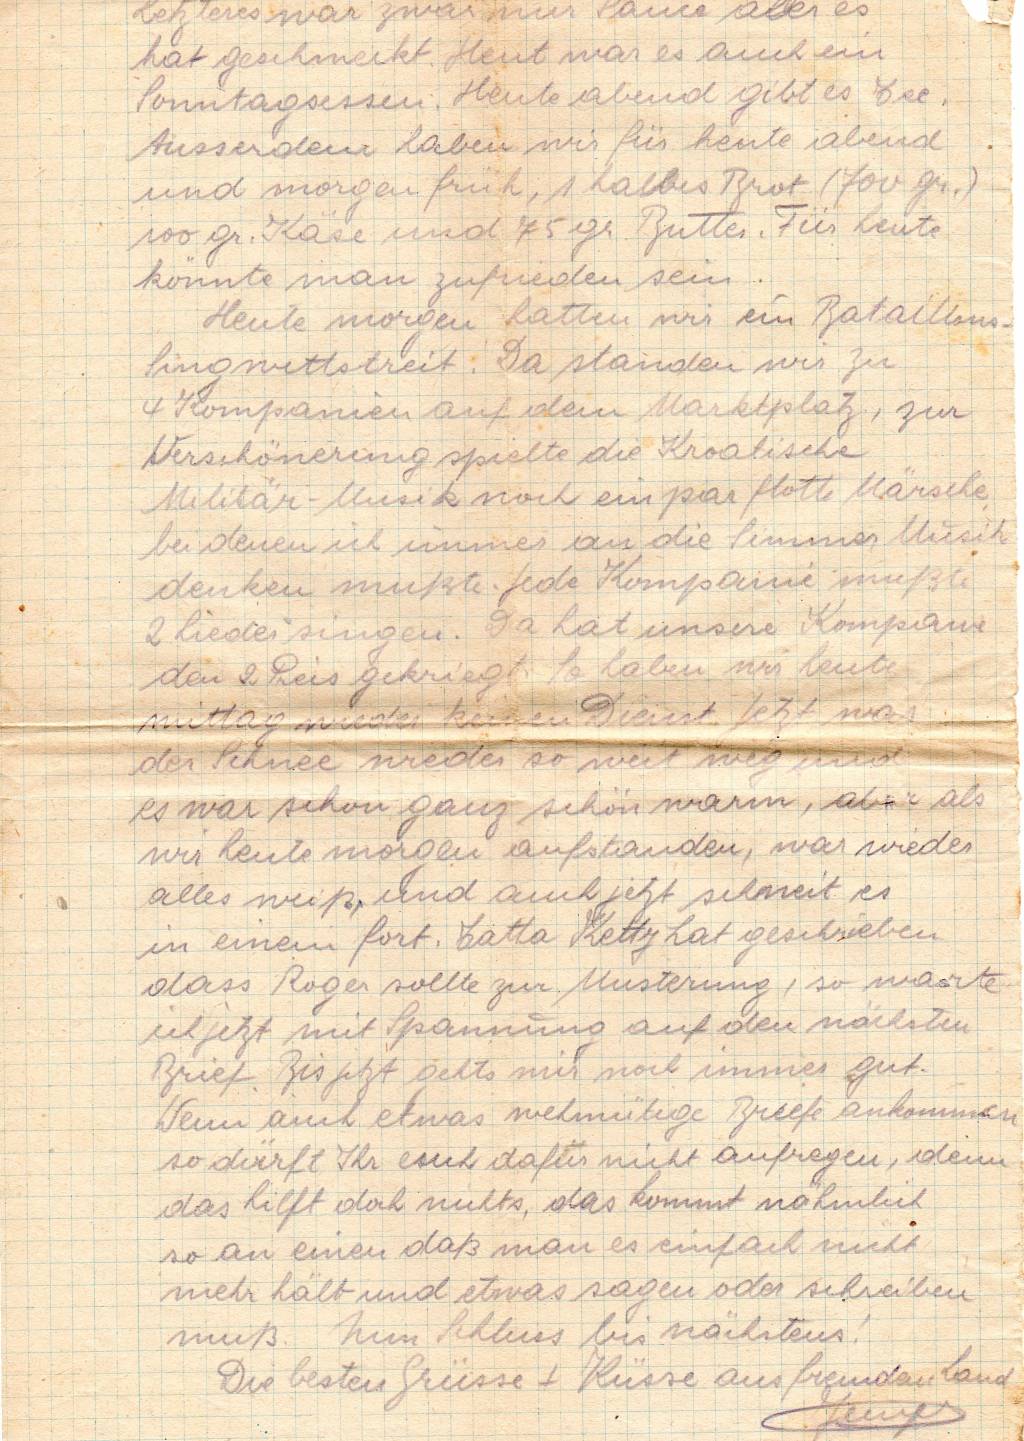 Letzteres war zwar nur Sauce aber es
hat geschmeckt. Heut war es auch ein
Sonntagsessen. Heute abend gibt es Tee.
Ausserdem haben wir für heute abend
und morgen früh, 1 halbes Brot (700 gr.)
100 gr. Käse und 75 gr Butter. Für heute
könnte man zufrieden sein.
Heute morgen hatten wir ein Bataillons-
singwettstreit. Da standen wir zu
4 Kompanien auf dem Marktplatz, zur
Verschönerung spielte die Kroatische
Militär-Musik noch ein par flotte Märsche
bei denen ich immer an die Simmer Musik
denken mußte. Jede Kompanie mußte
2 Lieder singen. Da hat unsere Kompanie
den 2 Preis gekriegt. So haben wir heute
mittag wieder keinen Dienst. Jetzt war
der Schnee wieder so weit weg und
es war schon ganz schön warm, aber als
wir heute morgen aufstanden, war wieder
alles weiß, und auch jetzt schneit es
in einem fort. Tatta Ketty hat geschrieben
dass Roger sollte zur Musterung, so warte
ich jetzt mit Spannung auf den nächsten
Brief. Bis jetzt gehts mir noch immer gut.
Wenn auch etwas wehmütige Briefe ankommen
so dürft Ihr euch dafür nicht aufregen, denn
das hilft doch nichts, das kommt nähmlich
so an einen daß man es einfach nicht
mehr hält und etwas sagen oder schreiben
muß. Nun Schluss bis nächstens!
Die besten Grüsse + Küsse aus fremden Land